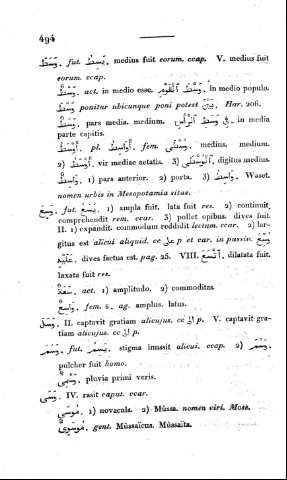 494
وَسَطَ, fut. يَسِطُ, medius fuit eorum. ccap. V. medius fuit
eorum. ccap.
وَسْطٌ, act. in medio esse. وَسْطَ الْقَوْمِ, in medio populo.
وَسْطَ ponitur ubicunque poni potest بَيْنَ, Har. 206.
وَسَطٌ, pars media. medium. فِى وَسَطِ الرَّأْسِ, in media
parte capitis.
أَوْسَطُ, pl. أَوَاسِطُ, fem. وُسْطَى, medius. medium.
2) أَوْسَطُ, vir mediae aetatis. 3) الْوُسْطَى, digitus medius.
وَاسِطٌ, 1) pars anterior. 2) porta. 3) وَاسِطُ, Waset.
nomen urbis in Mesopotamia sitae.
وَسِعَ, fut. يَسَعُ, 1) ampla fuit, lata fuit res. 2) continuit,
comprehendit rem. ccar. 3) pollet opibus. dives fuit.
II. 1) expandit. commodum reddidit lectum. ccar. 2) lar-
gitus est alicui aliquid. cc على p et car. in passiv. وُسِّعَ
عَلَيْهِ, dives factus est. pag. 25. VIII. اتَّسَعَ, dilatata fuit,
laxata fuit res.
سَعَةٌ, act. 1) amplitudo. 2) commoditas.
وَاسِعٌ, fem. ة, ag. amplus. latus.
وَسَلَ, II. captavit gratiam alicujus. cc الى p. V. captavit gra-
tiam alicujus. cc الى p.
وَسَمَ, fut. يَسِمُ, stigma inussit alicui. ccap. 2) وَسُمَ,
pulcher fuit homo.
وَسْمِىٌّ, pluvia primi veris.
وَسَى, IV. rasit caput. ccar.
مُوسَى, 1) novacula. 2) Mûssa. nomen viri. Mose.
مُوسَوِىٌّ, gent. Mûssaïcus. Mûssaïta.